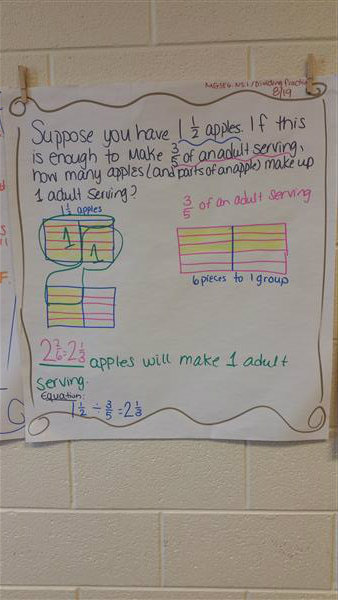 MGSE6.NS.1/Dividing Fractions
8/19
Suppose you have 1 1/2 apples. If this
is enough to make 3/5 of an adult serving,
how many apples (and parts of an apple) make up
1 adult serving?
1 1/2 apples
3/5 of an adult serving
1
1
6 pieces to 1 group
2 2/6 = 2 1/3 apples will make 1 adult
serving.
Equation:
1 1/2 ÷ 3/5 = 2 1/3